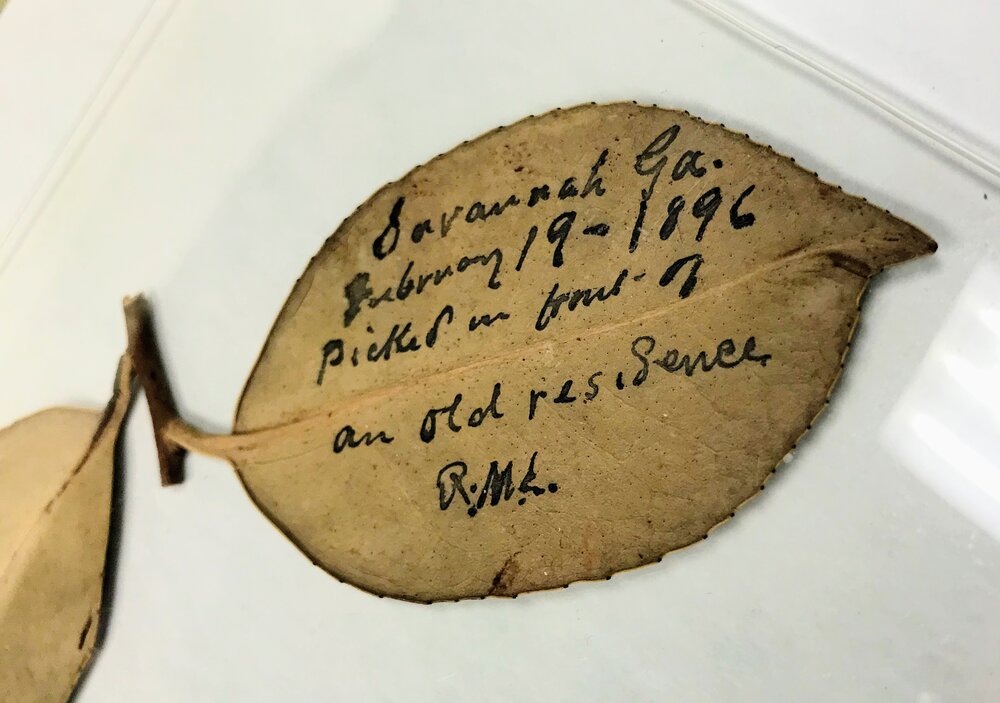 Savannah Ga.
February 19 - 1896
Picked in front of
an old residence
R.M.L.